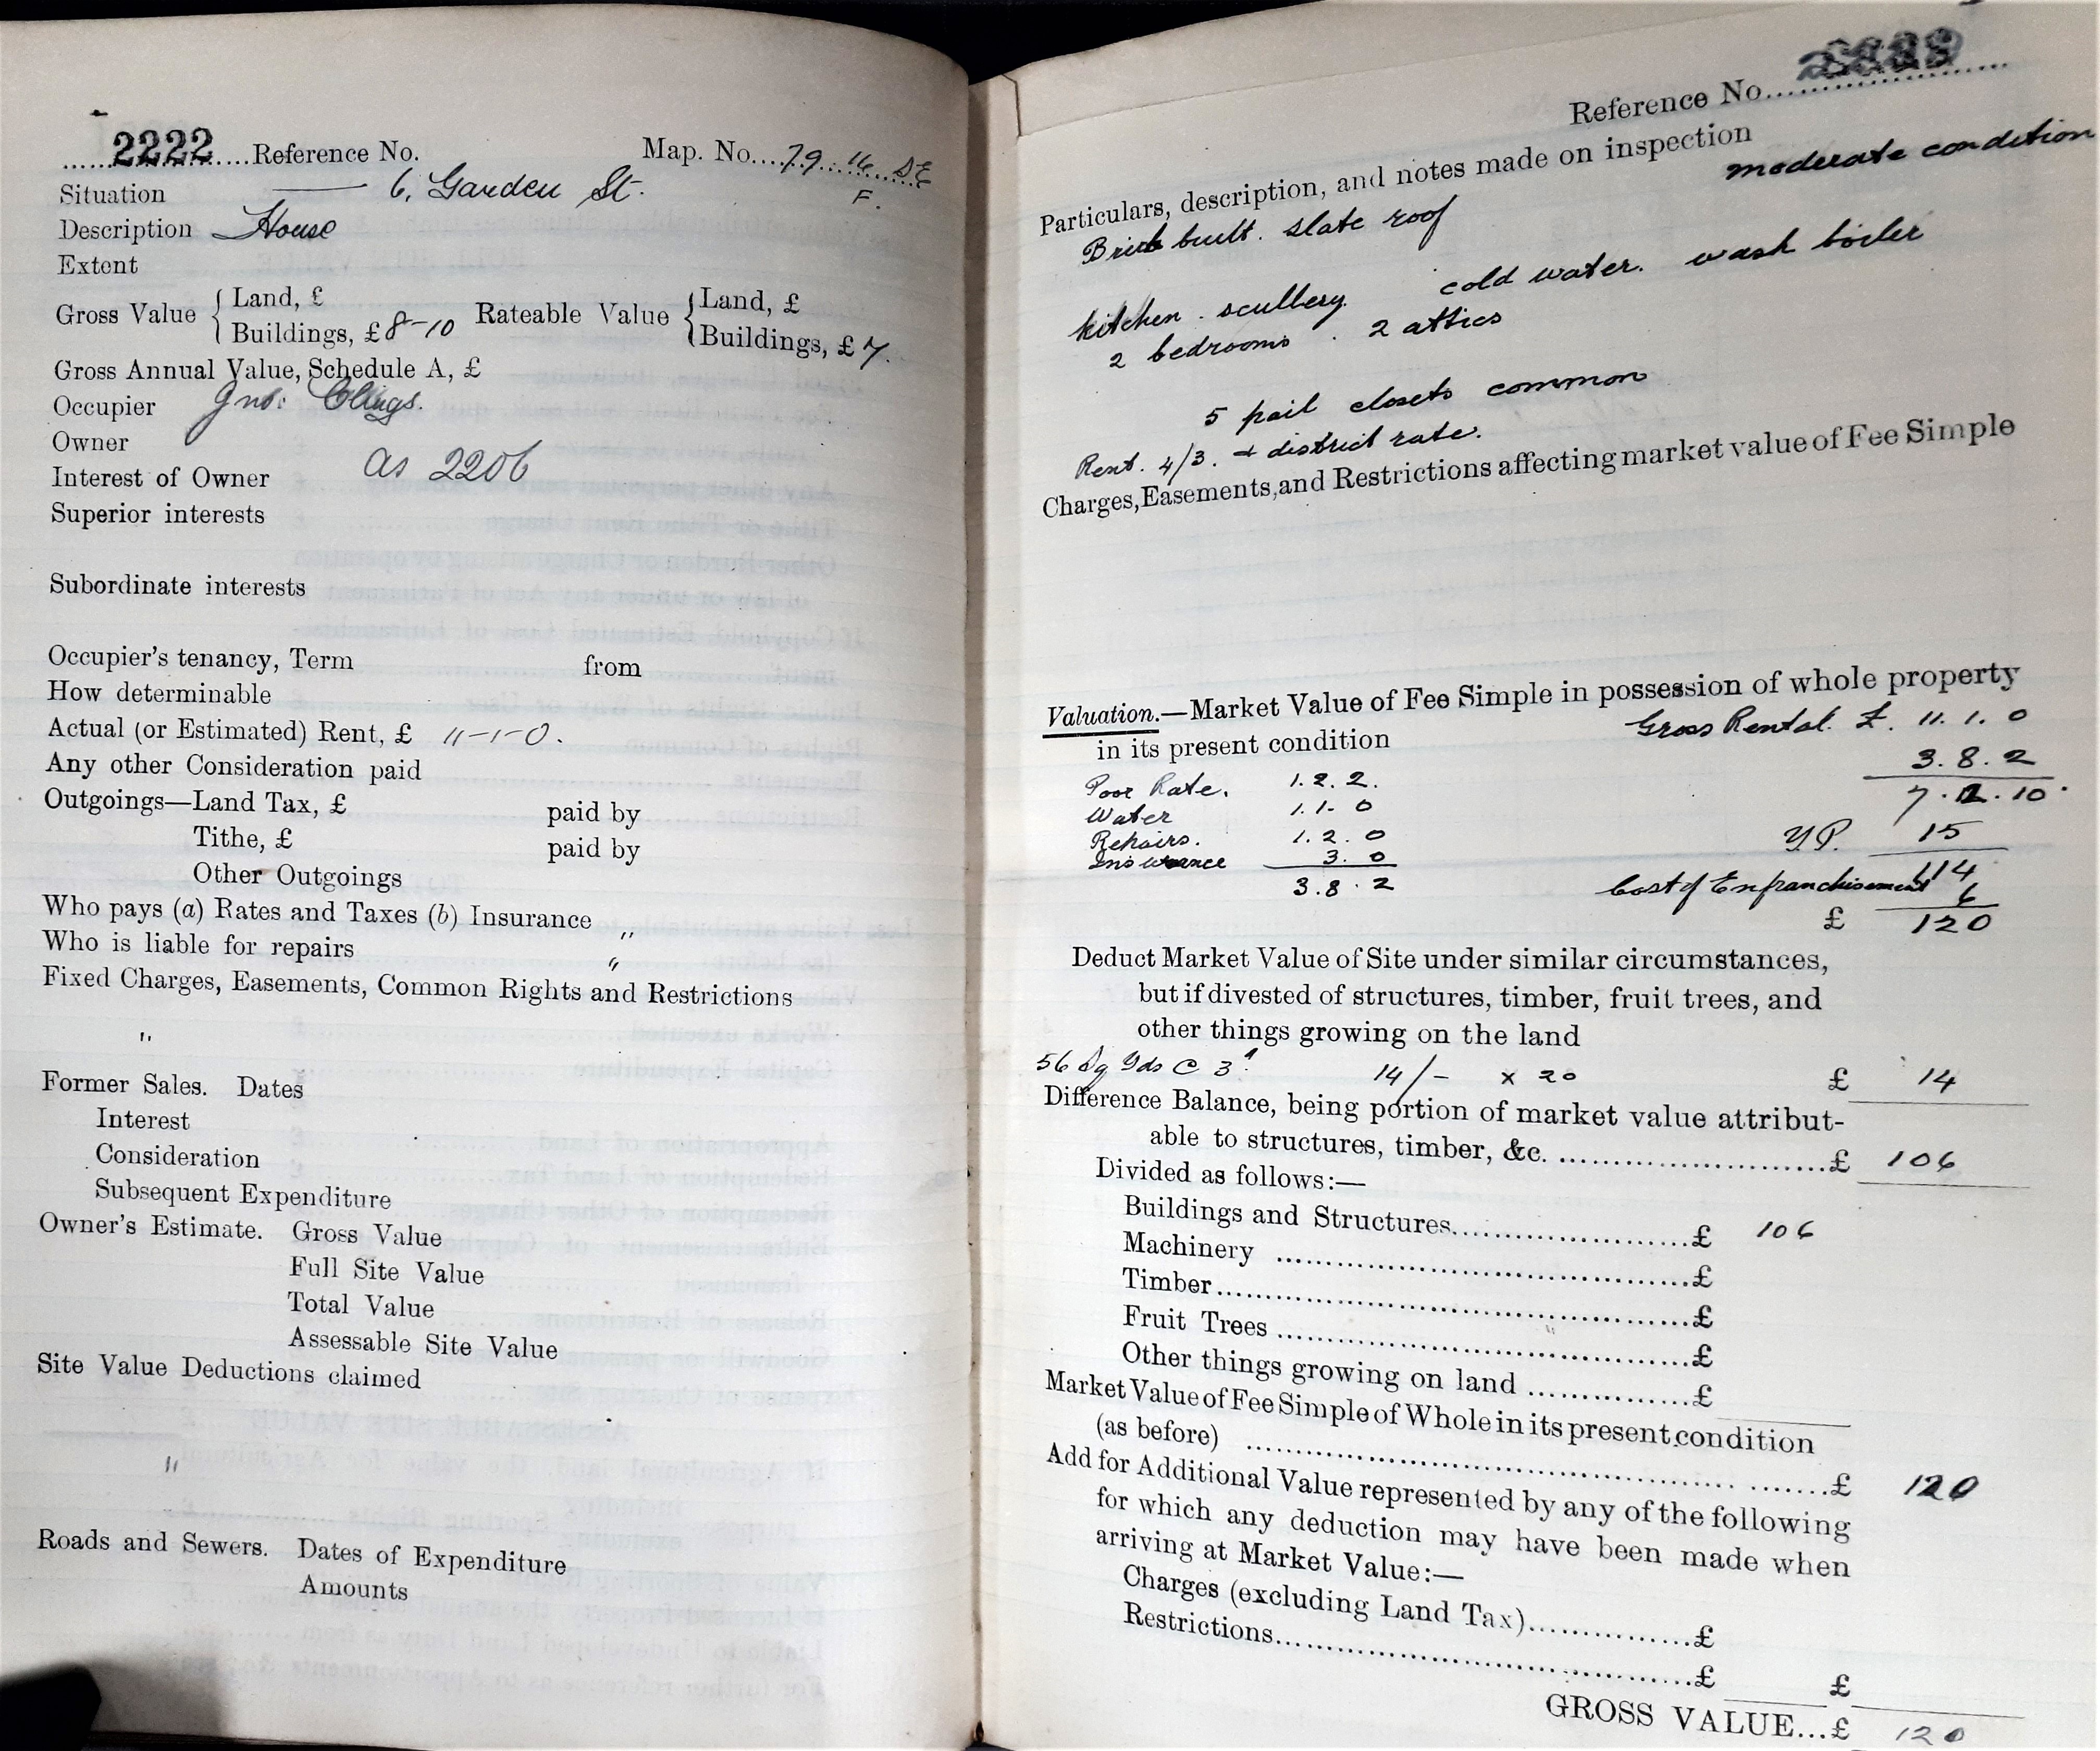 2222 Reference No. Map. No. 79. 16 SE
F.
Situation 6, Garden St.
Description House
Extent
Gross Value { Land, £
Buildings, £ 8-10
Rateable Value { Land, £
Buildings, £ 7.
Gross Annual Value, Schedule A, £
Occupier Jno: Clegs.
Owner
Interest of Owner as 2206
Superior interests
Subordinate interests
Occupier's tenancy, Term from
How determinable
Actual (or Estimated) Rent, £ 11-1-0.
Any other Consideration paid
Outgoings—Land Tax, £ paid by
Tithe, £ paid by
Other Outgoings
Who pays (a) Rates and Taxes (b) Insurance "
Who is liable for repairs "
Fixed Charges, Easements, Common Rights and Restrictions
"
Former Sales. Dates
Interest
Consideration
Subsequent Expenditure
Owner's Estimate. Gross Value
Full Site Value
Total Value
Assessable Site Value
Site Value Deductions claimed
"
Roads and Sewers. Dates of Expenditure
Amounts
Reference No.
Particulars, description, and notes made on inspection
moderate condition
Brick built. slate roof
kitchen. scullery. cold water. wash boiler
2 bedrooms. 2 attics
5 pail closets common
Rent. 4/3. + district rate.
Charges, Easements, and Restrictions affecting market value of Fee Simple
Valuation.—Market Value of Fee Simple in possession of whole property
in its present condition Gross Rental. £. 11. 1. 0
3. 8. 2
Poor Rate. 1. 2. 2. 7. 12. 10.
Water 1. 1. 0
Repairs. 1. 2. 0 Y.P. 15
Insurance 3. 0 114
3. 8. 2 Cost of Enfranchisement 6
£ 120
Deduct Market Value of Site under similar circumstances,
but if divested of structures, timber, fruit trees, and
other things growing on the land
56 Sq Yds @ 3d. 14/- x 20 £ 14
Difference Balance, being portion of market value attribut-
able to structures, timber, &c. £ 106
Divided as follows:—
Buildings and Structures £ 106
Machinery £
Timber £
Fruit Trees £
Other things growing on land £
Market Value of Fee Simple of Whole in its present condition
(as before) £ 120
Add for Additional Value represented by any of the following
for which any deduction may have been made when
arriving at Market Value:—
Charges (excluding Land Tax) £
Restrictions £ £
GROSS VALUE...£ 120